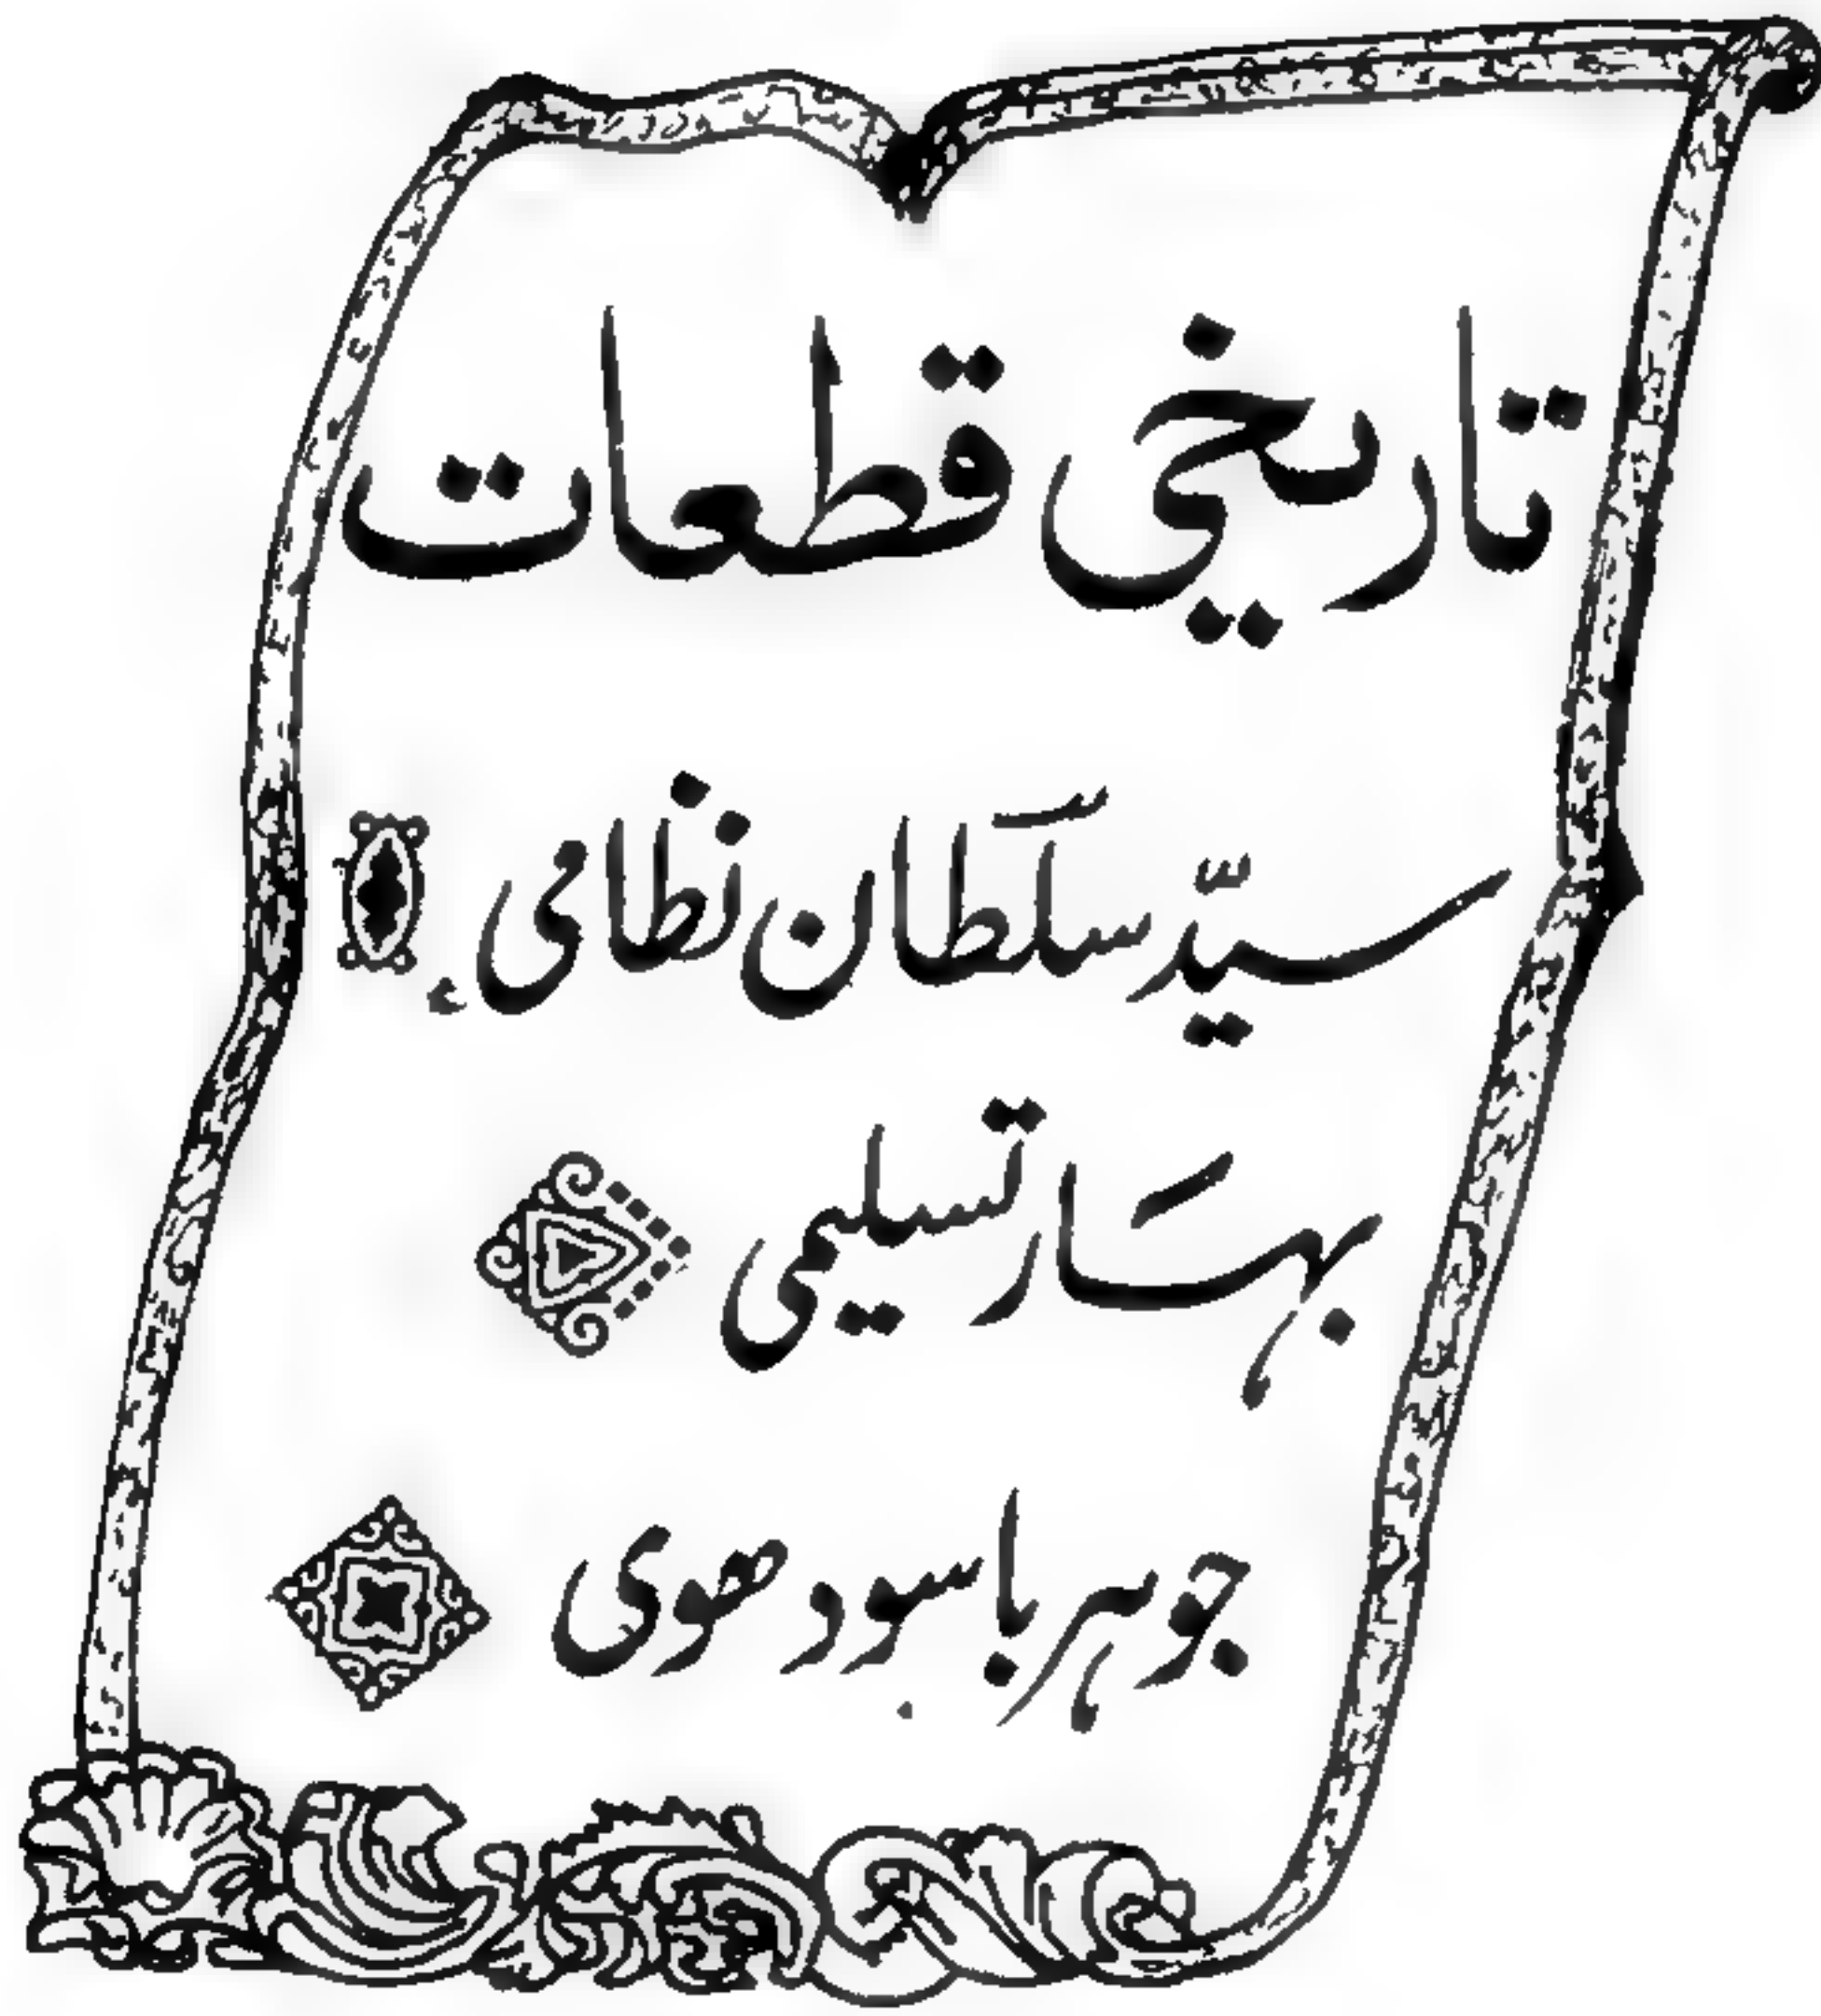 تاریخی قطعات
سیّد سلطان نظامی
بہار تسلیمی
جوہر باسودھوی